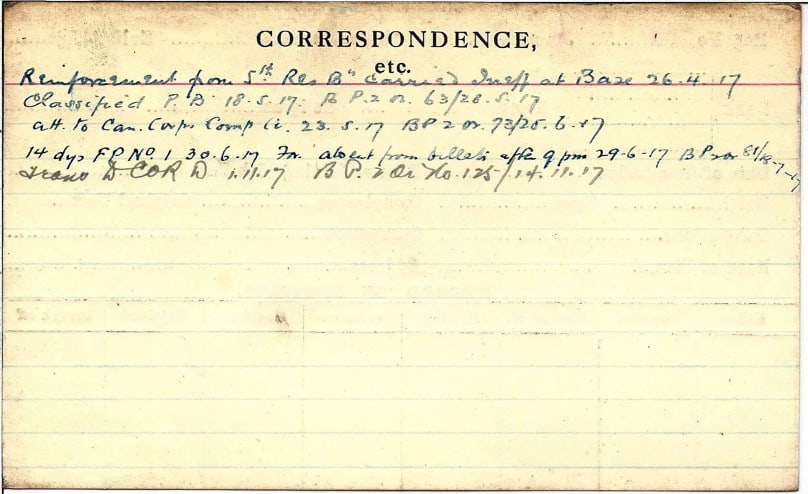 CORRESPONDENCE,
etc.
Reinforcement from 5th Res Bn carried Ineff at Base 26.4.17
Classified P.B. 18.5.17. B P.2 or. 63/28.5.17
att. to Can. Corps Comp Co. 23.5.17 BP 2 or. 73/25.6.17
14 dys FP No 1 30.6.17 For absent from billets after 9 pm 29-6-17 B P2 or 81/
Trans D COR D 1.11.17 B P. 2 Or No. 125/14.11.17